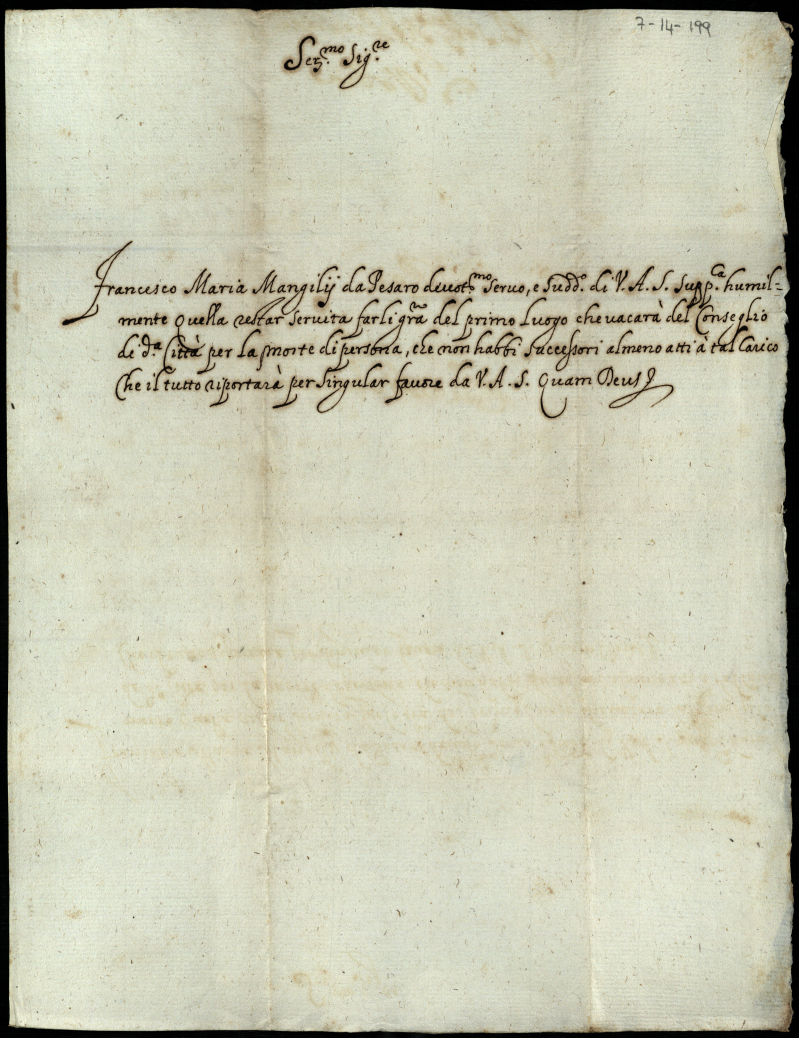 7-14-199
Ser.mo Sig.re
Francesco Maria Mangilij da Pesaro devot.mo Servo, e Sudd.o di V. A. S. Supp.ca humil=
mente quella restar servita farli gra del primo Luogo che vacarà del Conseglio
di d.a Città per la morte di persona, che non habbi successori almeno atti à tal Carico
Che il tutto riportarà per singular favore da V. A. S. Quam Deus